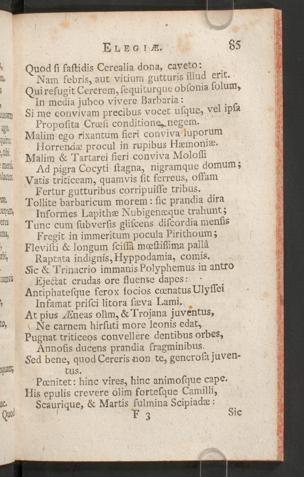 ELEGIÆ. 85
Quod si fastidis Cerealia dona, caveto:
Nam febris, aut vitium gutturis illud erit.
Qui refugit Cererem, sequiturque obsonia solum,
In media jubeo vivere Barbaria:
Si me convivam precibus vocet usque, vel ipsa
Proposita Crœsi conditione, negem.
Malim ego rixantum fieri conviva luporum
Horrendæ procul in rupibus Hæmoniæ.
Malim & Tartarei fieri conviva Molossi
Ad pigra Cocyti stagna, nigramque domum;
Vatis triticeam, quamvis sit ferreus, offam
Fertur gutturibus corripuisse tribus.
Tollite barbaricum morem: sic prandia dira
Informes Lapithæ Nubigenæque trahunt;
Tunc cum subversis gliscens discordia mensis
Fregit in immeritum pocula Pirithoum;
Flevisti & longum scissâ mœstissima pallâ
Raptata indignis, Hyppodamia, comis.
Sic & Trinacrio immanis Polyphemus in antro
Ejectat crudas ore fluente dapes:
Antiphatesque ferox socios cœnatus Ulyssei
Infamat prisci litora sæva Lami.
At pius Æneas olim, & Trojana juventus,
Ne carnem hirsuti more leonis edat,
Pugnat triticeos convellere dentibus orbes,
Annosis ducens prandia fragminibus.
Sed bene, quod Cereris non te, generosa juven-
tus.
Pœnitet: hinc vires, hinc animosque cape.
His epulis crevere olim fortesque Camilli,
Scaurique, & Martis fulmina Scipiadæ:
F 3 Sic